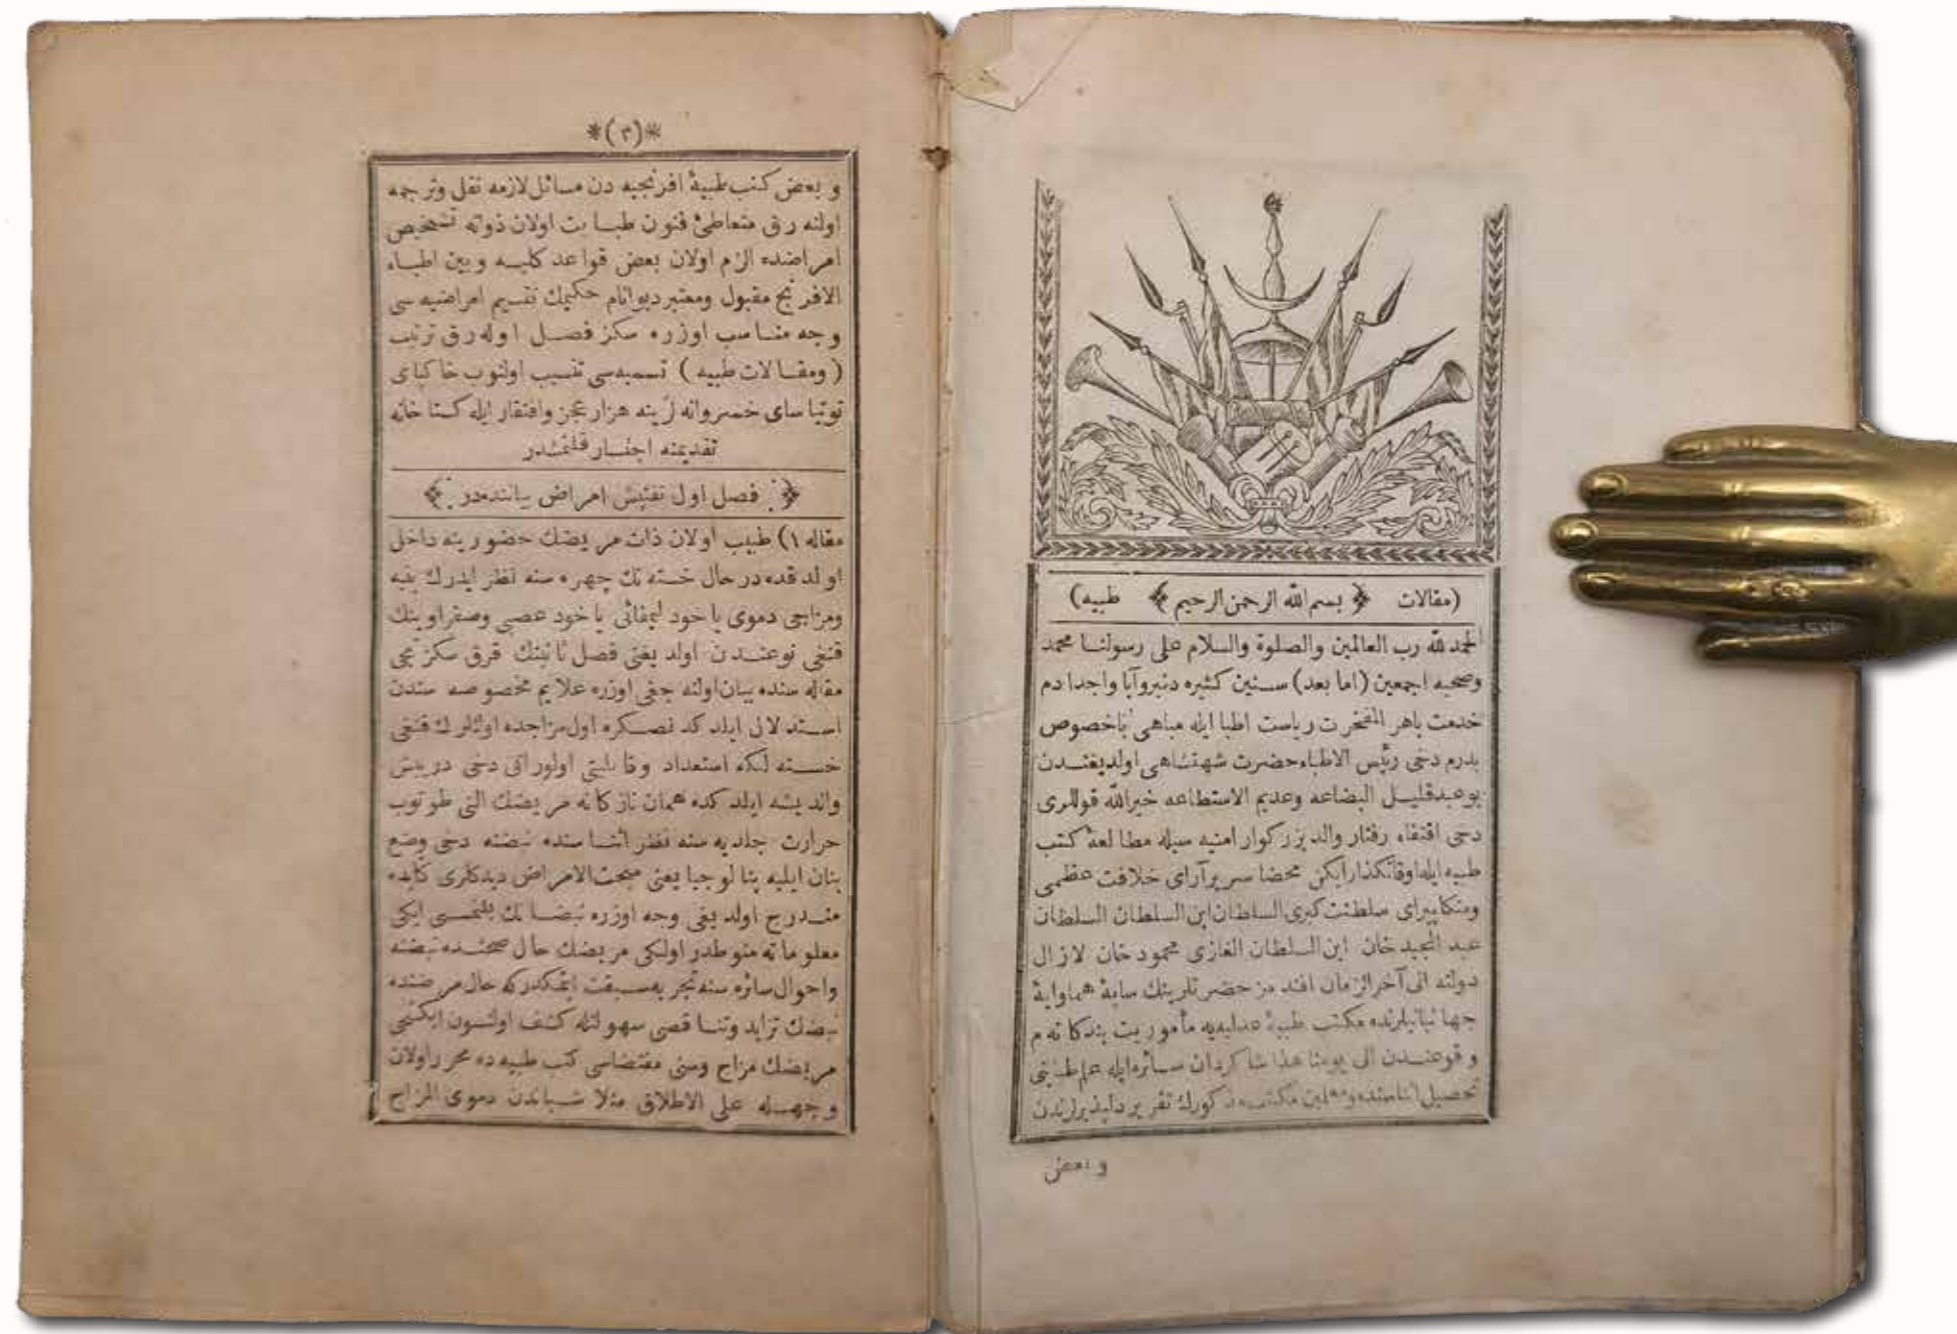 (مقالات ﴿ بسم الله الرحمن الرحيم ﴾ طبيه)
الحمد لله رب العالمين والصلوة والسلام على رسولنا محمد
وصحبه اجمعين (اما بعد) سنين كثيره دنبرو آبا واجدادم
خدمت باهر المفخرت رياست اطبا ايله مباهى باخصوص
پدرم دخى رئيس الاطباء حضرت شهنشاهى اولديغندن
بو عبد قليل البضاعه وعديم الاستطاعه خيرالله قوللرى
دخى اقتفاء رفتار والد بزركوار امنيه سيله مطالعهٔ كتب
طبيه ايله اوقاتكذار ايكن محضا سريرآراى خلافت عظمى
سلطنت كبرى السلطان ابن السلطان السلطان
عبد المجيد خان ابن السلطان الغازى محمود خان لازال
دولته الى آخر الزمان افندمز حضرتلرينك سايهٔ همايوايهٔ
جهانبانيلرنده مكتب طبيهٔ عدليه يه مأموريت بندكانه م
وقوعندن الى يومنا هذا شاكردان سائره ايله علم طبى
تحصيل اثناسنده ومعلمين مكتب مذكورك تقرير دلپذيرلرندن
و بعض
*(٣)*
و بعض كتب طبيهٔ افرنجيه دن مسائل لازمه نقل وترجمه
اولنه رق متعاطئ فنون طبابت اولان ذواته تشخيص
امراضده الزم اولان بعض قواعد كليه وبين اطباء
الافرنج مقبول ومعتبر ديو انام حكيمك تقسيم امراضيه سى
وجه مناسب اوزره سكز فصل اوله رق ترتيب
(ومقالات طبيه) تسميه سى تنسيب اولنوب خاكپاى
توتيا ساى خسروانه لرينه هزار عجز وافتقار ايله كستاخانه
تقديمنه اجتسار قلنمشدر
﴿ فصل اول تفتيش امراض بياننده در ﴾
مقاله ١) طبيب اولان ذات مريضك حضورينه داخل
اولدقده درحال خسته نك چهره سنه نظر ايدرك بنيه
ومزاجى دموى ياخود ليمفائى ياخود عصبى وصفراوينك
قنغى نوعندن اولديغنى فصل ثانينك قرق سكزنجى
مقاله سنده بيان اولنه جغى اوزره علايم مخصوصه سندن
استدلال ايلدكدنصكره اول مزاجده اولانلرك قنغى
خسته لكه استعداد وقابليتى اولور انى دخى درپيش
وانديشه ايلدكده همان نازكانه مريضك النى طوتوب
حرارت جلديه سنه نظر اثناسنده نبضنه دخى وضع
بنان ايليه پتالوجيا يعنى مبحث الامراض ديدكلرى كتابده
مندرج اولديغى وجه اوزره نبضانك بلنمسى ايكى
معلوماته منوطدر اولكى مريضك حال صحتنده نبضنه
واحوال سائره سنه تجربه سبقت ايتمكدر كه حال مرضنده
نبضك تزايد وتناقصى سهولتله كشف اولنسون ايكنجى
مريضك مزاج وسنى مقتضاسى كتب طبيه ده محرر اولان
وجهله على الاطلاق مثلا شباندن دموى المزاج